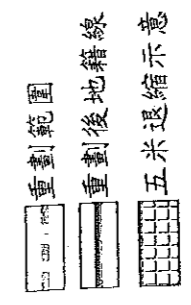 重劃範圍
重劃後地籍線
五米退縮示意